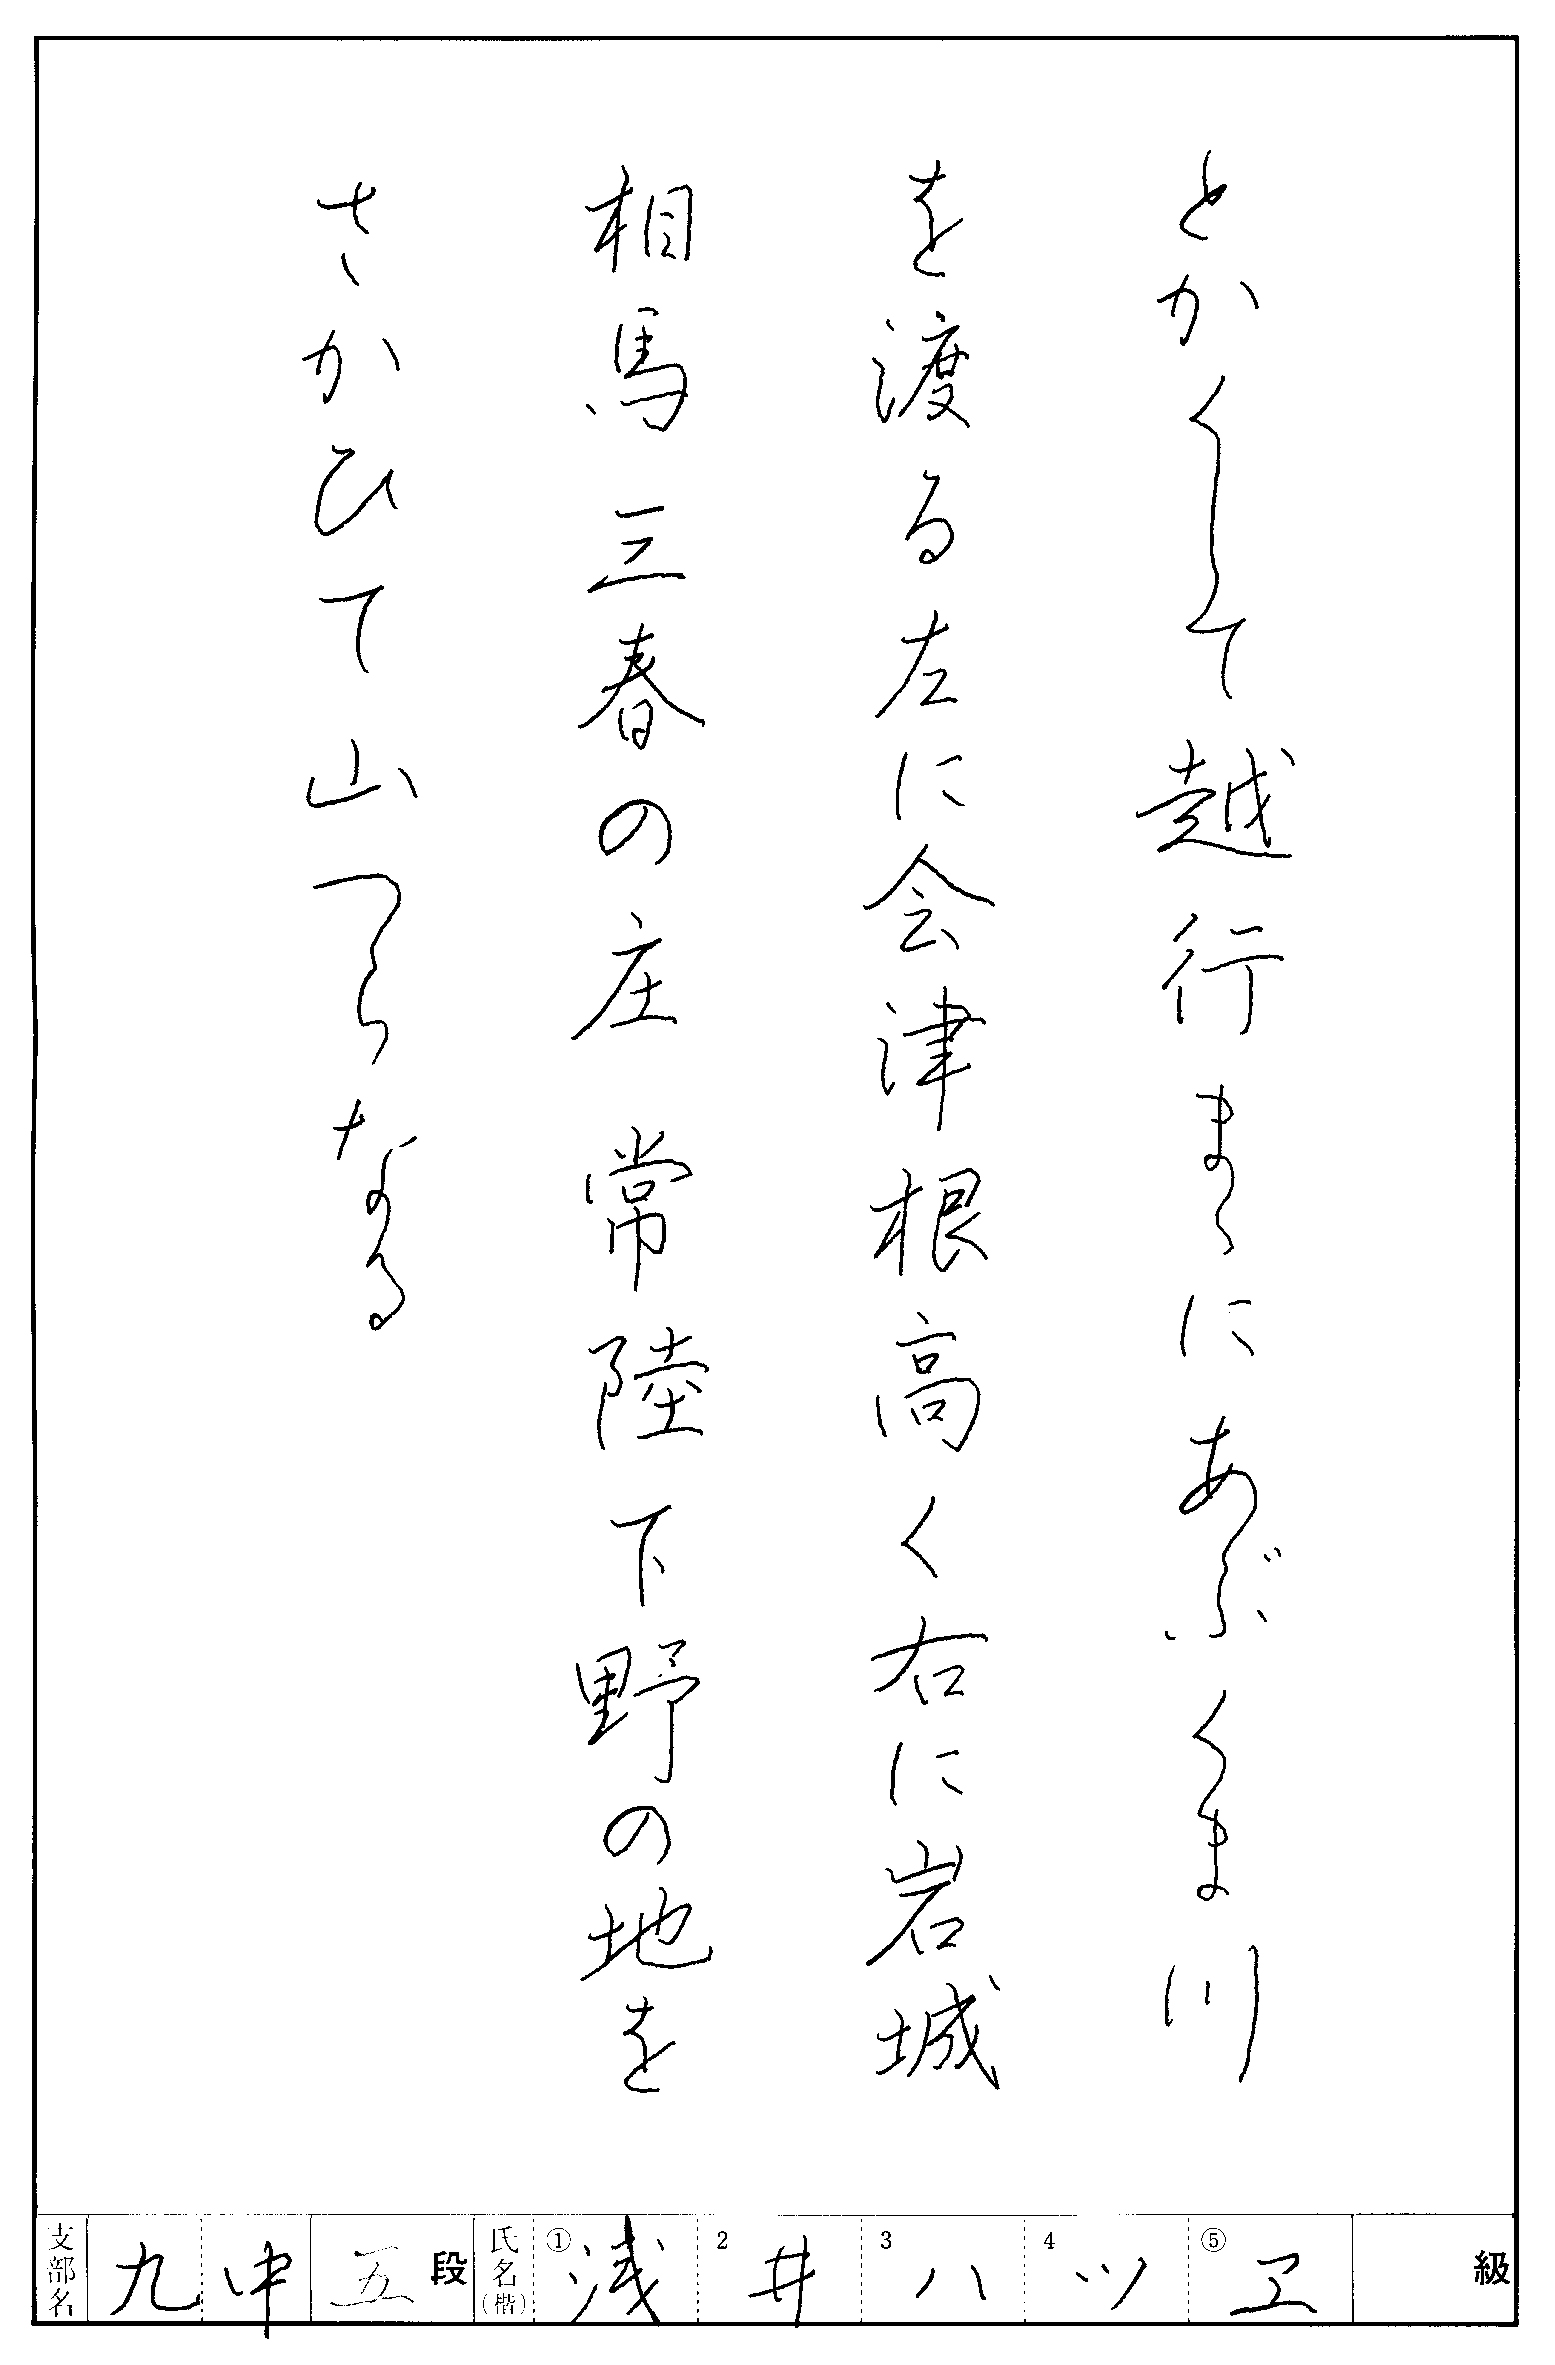 とかくして越行まゝにあぶくま川
を渡る左に会津根高く右に岩城
相馬三春の庄常陸下野の地を
さかひて山つらなる
支部名 九中 五段 氏名(楷) ①浅 2井 3ハ 4ツ ⑤ヱ 級